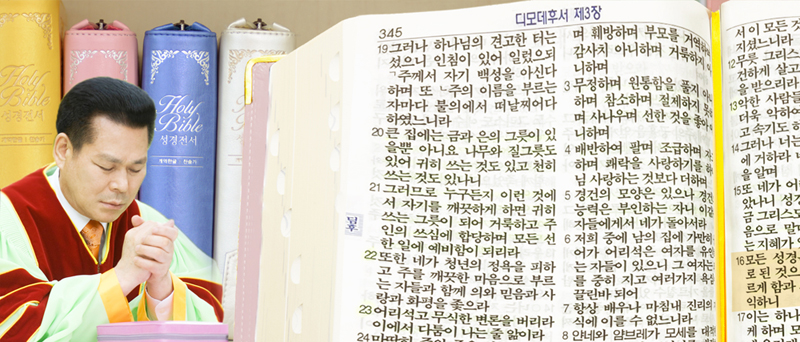 Holy
Bible
성경전서
Holy
Bible
성경전서
개역한글 찬송가
345
디모데후서 제3장
딤후
19그러나 하나님의 견고한 터는
섰으니 인침이 있어 일렀으되
ㄱ주께서 자기 백성을 아신다
하며 또 ㄴ주의 이름을 부르는
자마다 불의에서 떠날찌어다
하였느니라
20 큰 집에는 금과 은의 그릇이 있
을뿐 아니요 나무와 질그릇도
있어 귀히 쓰는 것도 있고 천히
쓰는 것도 있나니
21 그러므로 누구든지 이런 것에
서 자기를 깨끗하게 하면 귀히
쓰는 그릇이 되어 거룩하고 주
인의 쓰심에 합당하며 모든 선
한 일에 예비함이 되리라
22또한 네가 청년의 정욕을 피하
고 주를 깨끗한 마음으로 부르
는 자들과 함께 의와 믿음과 사
랑과 화평을 좇으라
23어리석고 무식한 변론을 버리라
이에서 다툼이 나는 줄 앎이라
24
며 훼방하며 부모를 거역하며
감사치 아니하며 거룩하지 아
니하며
3무정하며 원통함을 풀지
하며 참소하며 절제하지 못
며 사나우며 선한 것을 좋아
니하며
4배반하여 팔며 조급하며
하며 쾌락을 사랑하기를 하
님 사랑하는 것보다 더하며
5경건의 모양은 있으나 경건
능력은 부인하는 자니 이같
자들에게서 네가 돌아서라
6저희 중에 남의 집에 가만히
어가 어리석은 여자를 유인
는 자들이 있으니 그 여자는
를 중히 지고 여러가지 욕심
끌린바 되어
7항상 배우나 마침내 진리의
식에 이를 수 없느니라
8얀네와 얌브레가 모세를 대적
서 이 모든 것
지셨느니라
12무릇 그리스
건하게 살고
을 받으리라
13악한 사람들
더욱 악하여
고 속기도 하
14그러나 너는
에 거하라
을 알며
15또 네가 어
았나니 성경
금 그리스도
음으로 말미
는 지혜가
16모든 성경
로 된 것으
르게 함과
익하니
17이는 하나
케 하며